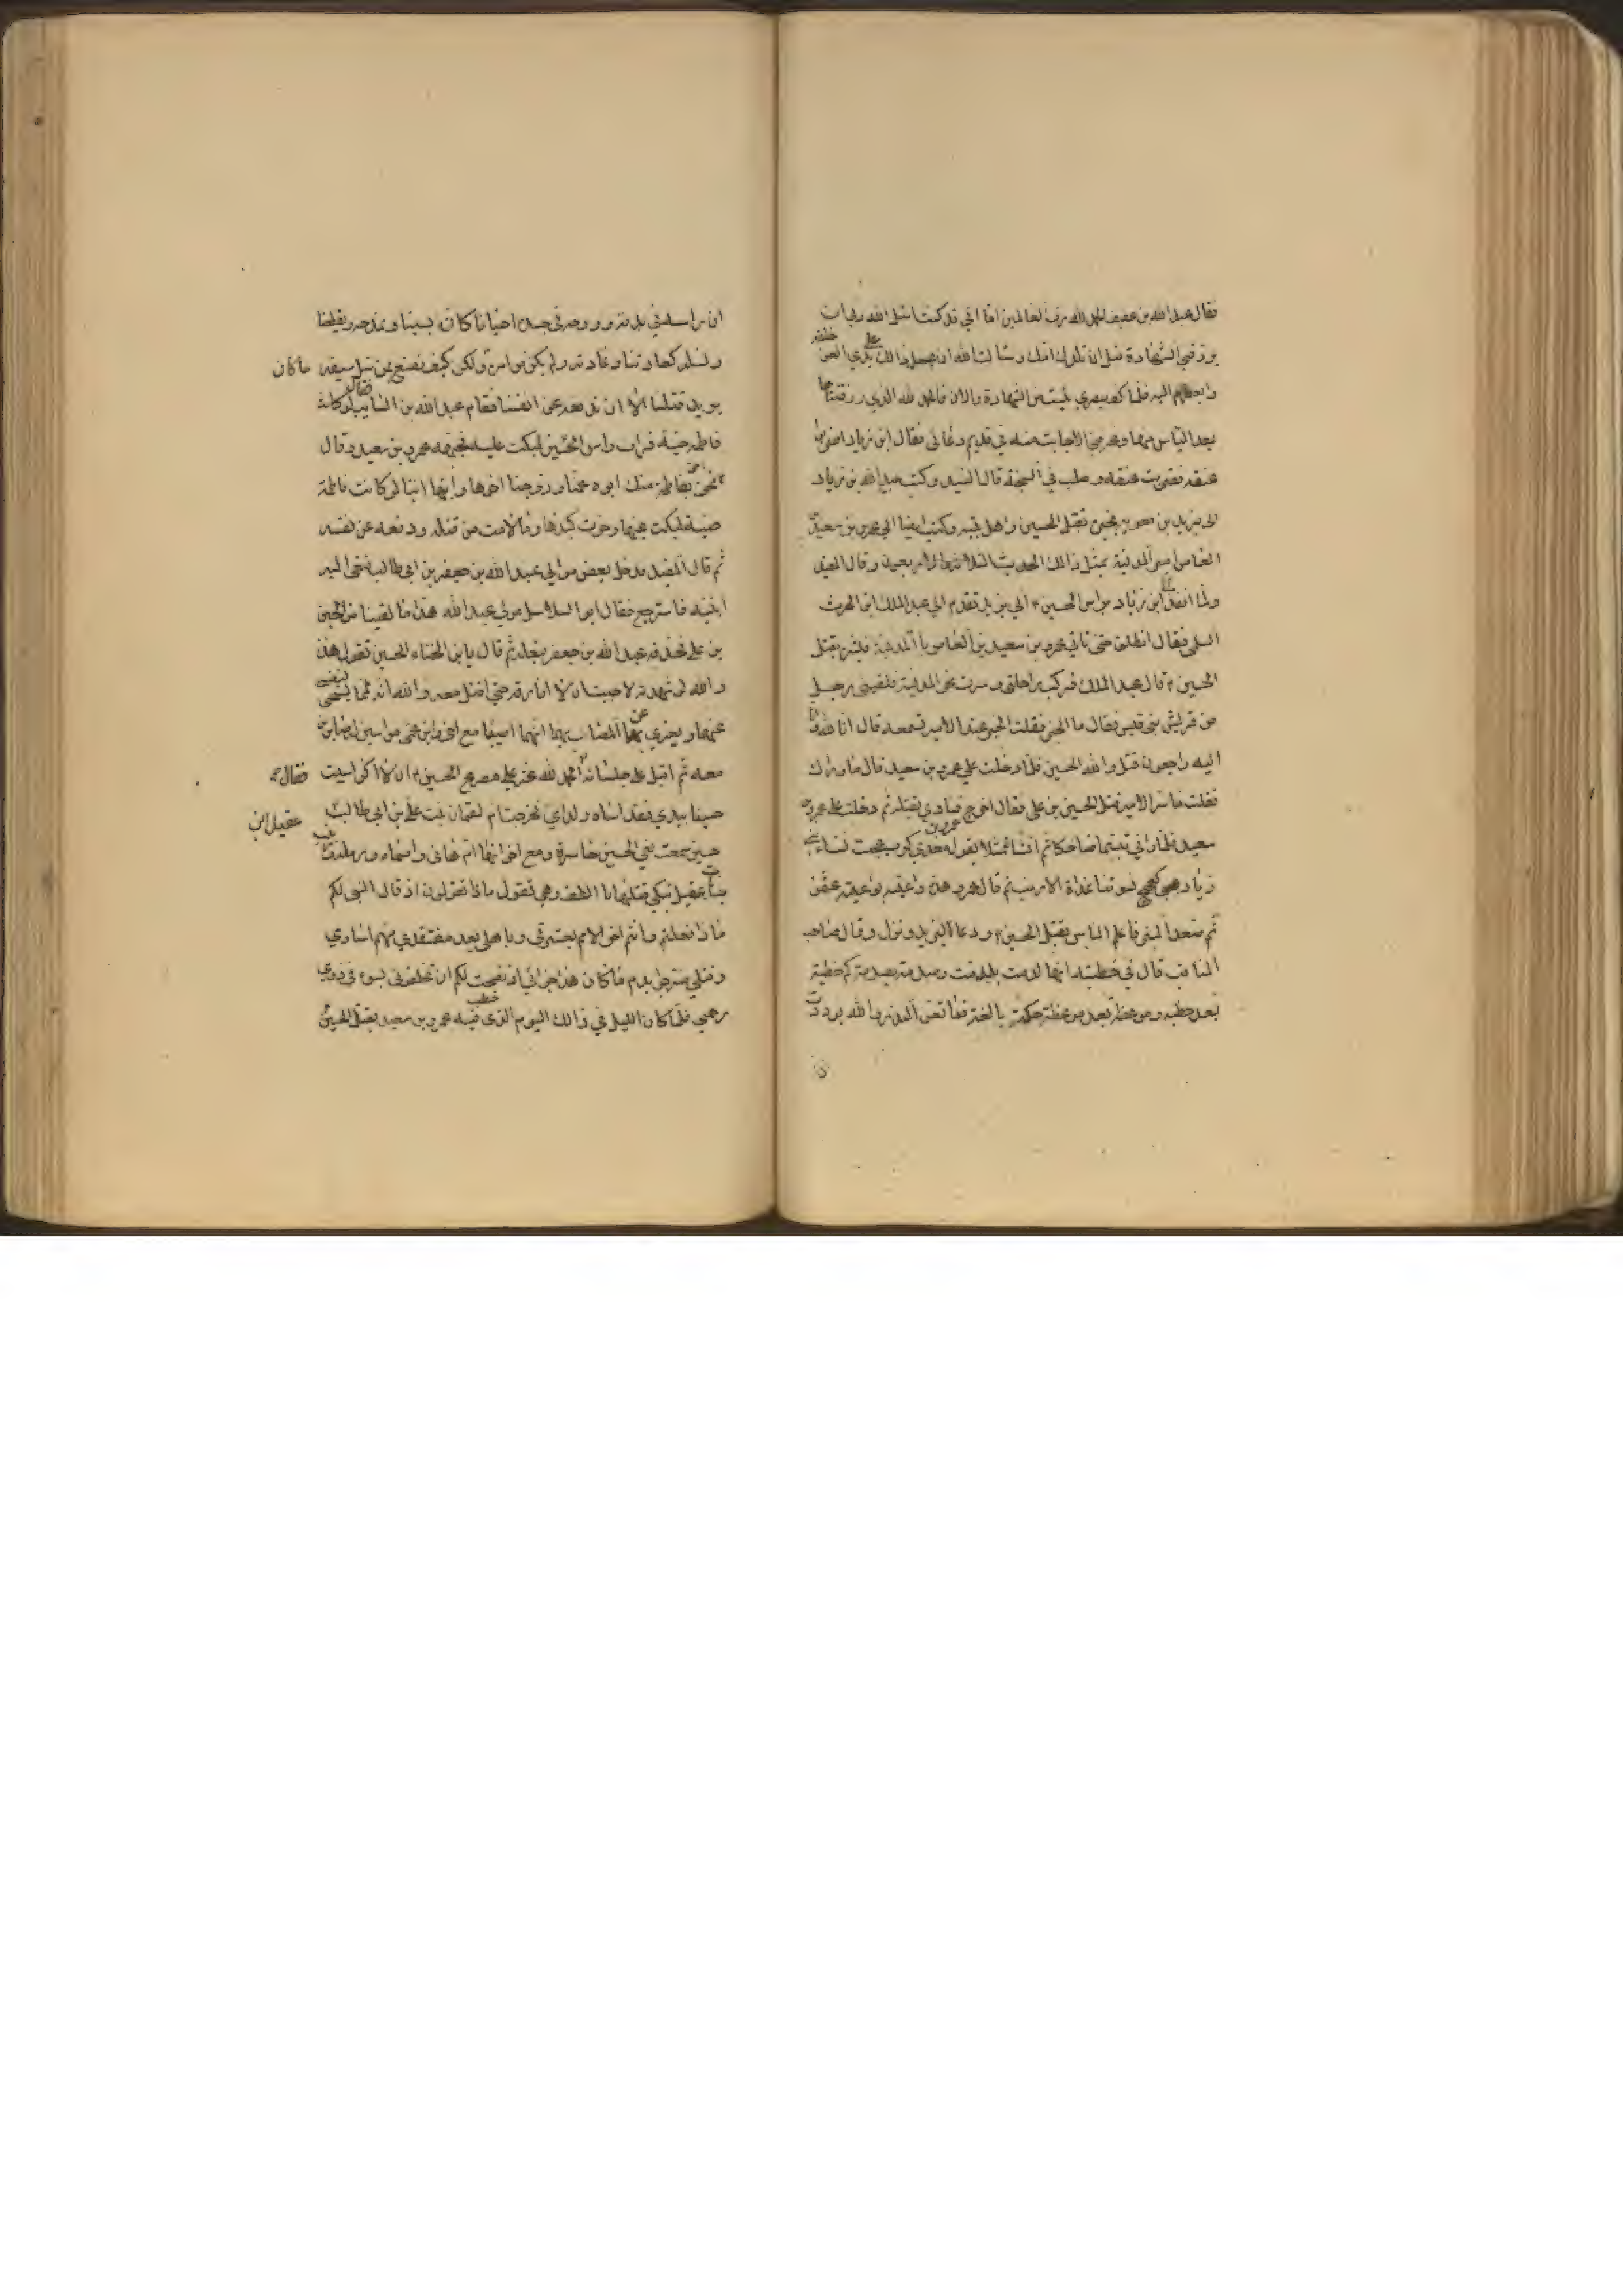 فقال عبد الله بن عفيف الحمد لله رب العالمين اما اني قد كنت اسئل الله ربي ان
يرزقني الشهادة قبل ان تلدك امك وسألت الله ان يجعل ذالك على يدي العن خلقه
وابغضهم اليه فلما كف بصري يئست من الشهادة والان فالحمد لله الذي رزقنيها
بعد الياس منها وعرفني الاجابة منه في قديم دعائي فقال ابن زياد اضربوا
عنقه فضربت عنقه وصلب في السبخة قال السيد وكتب عبيد الله بن زياد
الى يزيد بن معوية يخبره بقتل الحسين واهل بيته وكتب ايضا الى عمرو بن سعيد بن
العاص امير المدينة بمثل ذالك الحديث الثلاثون والاربعون وقال المفيد
ولما انفذ ابن زياد براس الحسين الى يزيد تقدم الى عبد الملك ابن الحرث
السلمي فقال انطلق حتى تاتي عمرو بن سعيد بن العاص بالمدينة فبشره بقتل
الحسين قال عبد الملك فركبت راحلتي وسرت نحو المدينة فلقيني رجل
من قريش فقال ما الخبر فقلت الخبر عند الامير تسمعه قال انا لله وانا
اليه راجعون قتل والله الحسين فلما دخلت على عمرو بن سعيد قال ما وراك
فقلت ما سر الامير قتل الحسين بن علي فقال اخرج فنادي بقتله ثم دخلت على عمرو بن
سعيد فلما راني تبسم ضاحكا ثم انشا متمثلا بقول عمرو بن معدي كرب عجت نساء بني
زياد عجة كعجيج نسوتنا غداة الارنب ثم قال عمرو هذه واعية بواعية عثمن
ثم صعد المنبر فاعلم الناس بقتل الحسين ودعا ليزيد ونزل وقال صاحب
المناقب قال في خطبته انها لدمة بلدمة وصدمة بصدمة كم خطبة
بعد خطبة وموعظة بعد موعظة حكمة بالغة فما تغن النذر والله لوددت
ان راسه في بدنه وروحه في جسده احيانا كان يسبنا ونمدحه ويقطعنا
ونصله كعادتنا وعادته ولم يكن من امره ما كان ولكن كيف نصنع بمن سل سيفه
يريد قتلنا الا ان ندفعه عن انفسنا فقام عبد الله بن السايب فقال لو كانت
فاطمة حية فرات راس الحسين لبكت عليه فجبهه عمرو بن سعيد وقال
نحن احق بفاطمة منك ابوها عمنا وزوجها اخونا وابنها ابننا لو كانت فاطمة
حية لبكت عينها وحرت كبدها وما لامت من قتله ودفعه عن نفسه
ثم قال المفيد فدخل بعض موالي عبد الله بن جعفر بن ابي طالب فنعى اليه
ابنيه فاسترجع فقال ابو السلاسل مولى عبد الله هذا ما لقينا من الحسين
بن علي فحذفه عبد الله بن جعفر بنعله ثم قال يابن اللخناء اللحسين تقول هذا
والله لو شهدته لاحببت ان لا افارقه حتى اقتل معه والله انه لمما يسخى بنفسي
عنهما ويعزي عن المصاب بهما انهما اصيبا مع اخي وابن عمي مواسين له صابرين
معه ثم اقبل على جلسائه فقال الحمد لله عز علي مصرع الحسين ان لا اكن اسيت
حسينا بيدي فقد اساه ولداي فخرجت ام لقمان بنت عقيل ابن ابي طالب
حين سمعت نعي الحسين حاسرة ومع اخواتها ام هاني واسماء ورملة وزينب
بنات عقيل تبكي قتلاها بالطف وهي تقول ماذا تقولون اذ قال النبي لكم
ماذا فعلتم وانتم اخر الامم بعترتي وباهلي بعد مفتقدي منهم اسارى
وقتلى ضرجوا بدم ما كان هذا جزائي اذ نصحت لكم ان تخلفوني بسوء في ذوي
رحمي فلما كان الليل في ذالك اليوم الذي خطب فيه عمرو بن سعيد بقتل الحسين